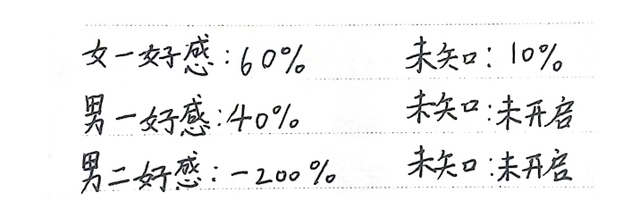 女一好感:60% 未知:10%
男一好感:40% 未知:未开启
男二好感:-200% 未知:未开启